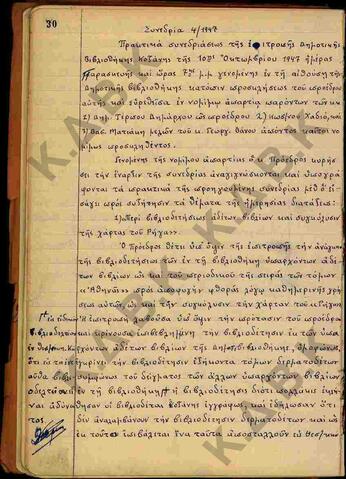 30
Συνεδρία 4/1947
Πρακτικά συνεδριάσεως τῆς ἐπιτροπῆς Δημοτικῆς
Βιβλιοθήκης Κοζάνης τῆς 10ης Ὀκτωβρίου 1947 ἡμέρας
Παρασκευῆς καὶ ὥρας 7ης μ.μ γενομένης ἐν τῇ αἰθούσῃ τῆς
Δημοτικῆς βιβλιοθήκης κατόπιν προσκλήσεως τοῦ προέδρου
αὐτῆς καὶ εὑρεθεῖσα ἐν νομίμῳ ἀπαρτίᾳ παρόντων τῶν κκ
1) Δημ. Τέρπου Δημάρχου ὡς προέδρου 2) Κων/νου
3) Βασ. Ματιάκη μελῶν τοῦ κ. Γεωργ. Θάνου ἀπόντος καίτοι νο
μίμως προσκληθέντος.
Γενομένης τῆς νομίμου ἀπαρτίας ὁ κ. Πρόεδρος κηρύσ
σει τὴν ἔναρξιν τῆς συνεδρίας ἀναγιγνώσκονται καὶ ὑπογρά
φονται τὰ πρακτικὰ τῆς προηγουμένης συνεδρίας μεθ' ὃ εἰ
σάγει πρὸς συζήτησιν τὰ θέματα τῆς ἡμερησίας διατάξεως:
1) Περὶ βιβλιοδετήσεως ἀδέτων βιβλίων καὶ συγκολλήσεως
τῆς χάρτας τοῦ Ρήγα
Ὁ Πρόεδρος θέτει ὑπ' ὄψιν τῆς ἐπιτροπῆς τὴν ἀνάγκην
τῆς βιβλιοδετήσεως τῶν ἐν τῇ βιβλιοθήκῃ ὑπαρχόντων ἀδέ
των βιβλίων ὡς καὶ τοῦ περιοδικοῦ τῆς σειρᾶς τῶν τόμων
«Ἀθηνᾶ» πρὸς ἀποφυγὴν φθορᾶς λόγῳ καθημερινῆς χρή
σεως αὐτῶν, ὡς καὶ τὴν συγκόλλησιν τὴν χάρταν τοῦ κ. Ρήγα
Ἡ ἐπιτροπὴ λαβοῦσα ὑπ' ὄψιν τὴν πρότασιν τοῦ προέδρου
καὶ κρίνουσα ἐπιβεβλημένην τὴν βιβλιοδέτησιν ἐκ τῶν ὑπαρ
χόντων ἀδέτων βιβλίων τῆς Δημοτ. βιβλιοθήκης, ὁμοφώνως
ἐγκρίνει τὴν βιβλιοδέτησιν ἑξήκοντα τόμων δερματοδέτων
συμφώνως τοῦ δείγματος τῶν ἄλλων ὑπαρχόντων βιβλίων
ἐν τῇ βιβλιοθήκῃ ἡ βιβλιοδέτησις διότι
ἀδυνάτησαν οἱ βιβλιοδέται Κοζάνης ἐγγράφως καὶ ἐδήλωσαν ὅτι
δὲν ἀναλαμβάνουν τὴν βιβλιοδέτησιν δερματοδέτων καὶ ὡς
ἐκ τούτου ἐπιβάλλεται ἵνα ταῦτα ἀποσταλοῦν εἰς Θεσ/νίκην